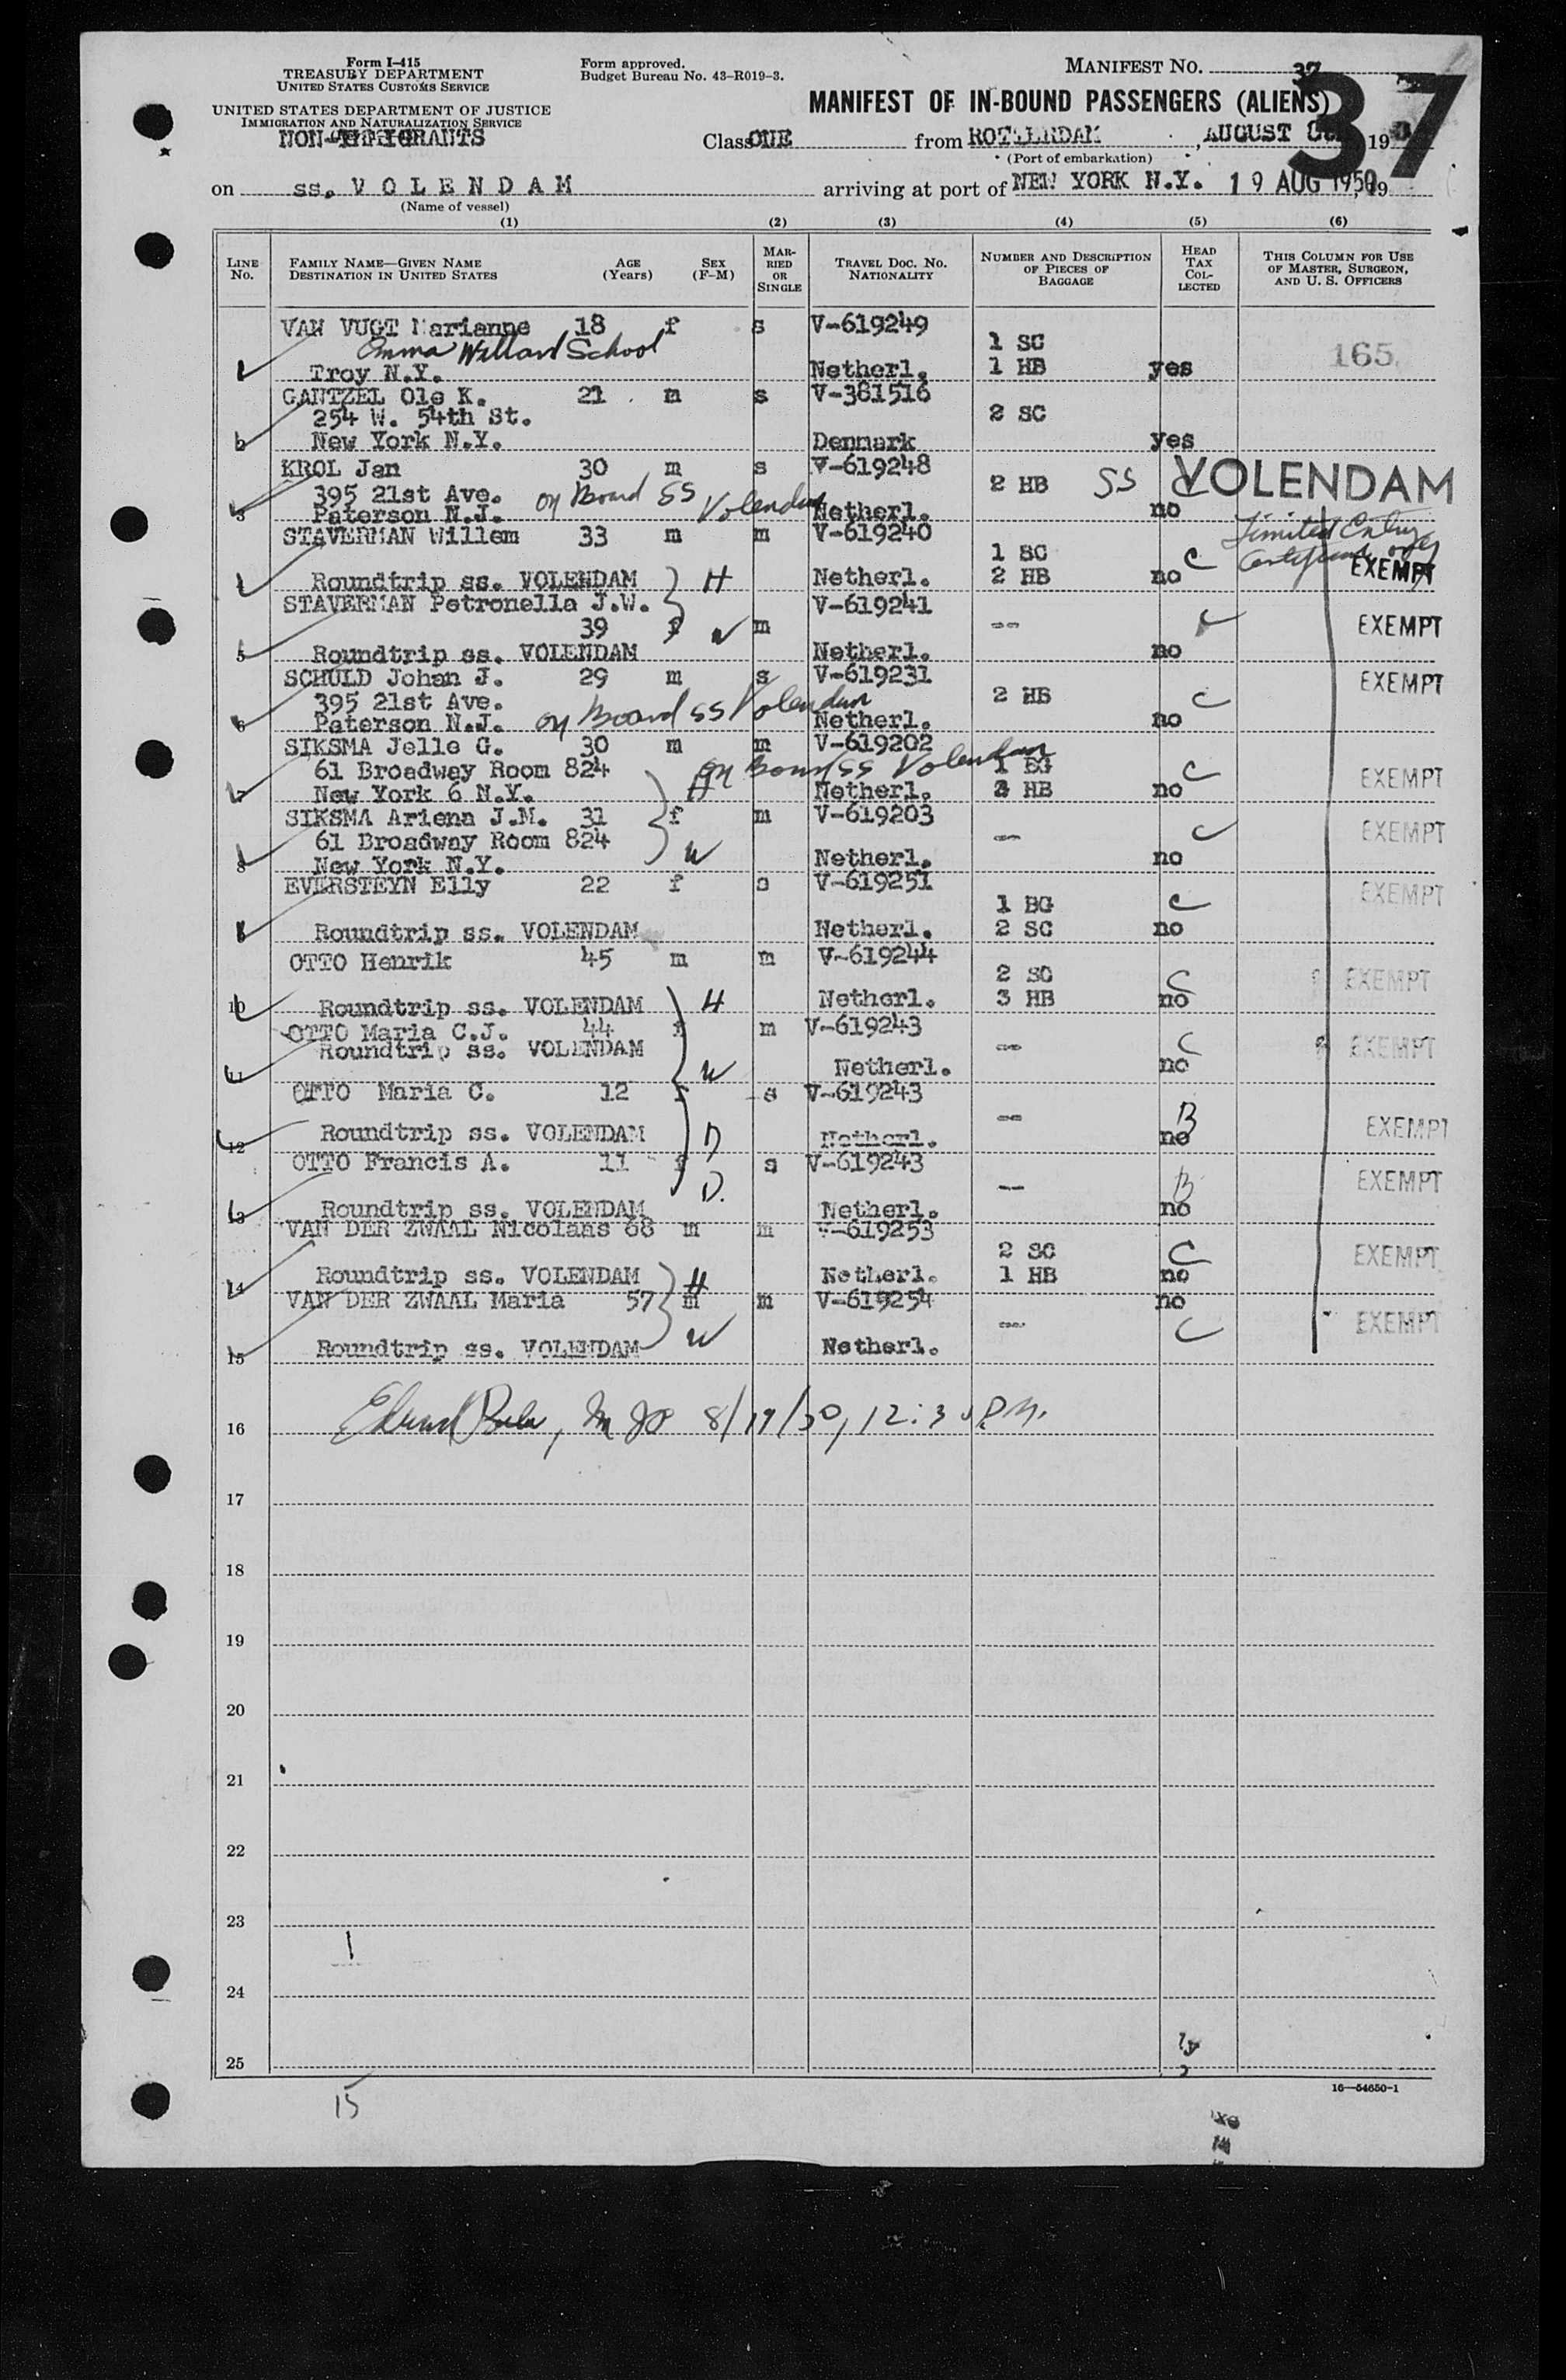 Form I-415
TREASURY DEPARTMENT
UNITED STATES CUSTOMS SERVICE
UNITED STATES DEPARTMENT OF JUSTICE
IMMIGRATION AND NATURALIZATION SERVICE
Form approved.
Budget Bureau No. 43-R019-3.
MANIFEST NO. 37
37
MANIFEST OF IN-BOUND PASSENGERS (ALIENS)
Class ONE from ROTTERDAM, AUGUST 19
(Port of embarkation)
on ss. VOLENDAM arriving at port of NEW YORK N.Y. 19 AUG 1950, 19
(Name of vessel)
(1) (2) (3) (4) (5) (6)
LINE No. FAMILY NAME—GIVEN NAME DESTINATION IN UNITED STATES AGE (Years) SEX (F-M) MARRIED OR SINGLE TRAVEL DOC. NO. NATIONALITY NUMBER AND DESCRIPTION OF PIECES OF BAGGAGE HEAD TAX COLLECTED THIS COLUMN FOR USE OF MASTER, SURGEON, AND U. S. OFFICERS
VAN VUGT Marianne 18 f s V-619249
Emma Willard School 1 SC
Troy N.Y. Netherl. 1 HB yes 165
GANTZEL Ole K. 21 m s V-381516
254 W. 54th St. 2 SC
New York N.Y. Denmark yes
KROL Jan 30 m s V-619248
395 21st Ave. on Board SS Volendam 2 HB SS VOLENDAM
3 Paterson N.J. Netherl. no
STAVERMAN Willem 33 m m V-619240 Limited Entry
1 SC C
4 Roundtrip ss. VOLENDAM H Netherl. 2 HB no EXEMPT
STAVERMAN Petronella J.W. V-619241
39 f W m -- EXEMPT
5 Roundtrip ss. VOLENDAM Netherl. no
SCHULD Johan J. 29 m s V-619231 EXEMPT
395 21st Ave. 2 HB C
6 Paterson N.J. on Board SS Volendam Netherl. no
SIKSMA Jelle G. 30 m m V-619202
61 Broadway Room 824 on Board SS Volendam 1 BG C EXEMPT
7 New York 6 N.Y. H Netherl. HB no
SIKSMA Ariena J.M. 31 f m V-619203
61 Broadway Room 824 -- C EXEMPT
8 New York N.Y. W Netherl. no
EVERSTEYN Elly 22 f s V-619251
1 BG C EXEMPT
Roundtrip ss. VOLENDAM Netherl. 2 SC no
OTTO Henrik 45 m m V-619244
2 SC C EXEMPT
10 Roundtrip ss. VOLENDAM H Netherl. 3 HB no
OTTO Maria C.J. 44 f m V-619243
Roundtrip ss. VOLENDAM -- C EXEMPT
11 W Netherl. no
OTTO Maria C. 12 f s V-619243
-- B EXEMPT
12 Roundtrip ss. VOLENDAM D Netherl. no
OTTO Francis A. 11 f s V-619243
D. -- B EXEMPT
13 Roundtrip ss. VOLENDAM Netherl. no
VAN DER ZWAAL Nicolaas 68 m m V-619253
2 SC C EXEMPT
14 Roundtrip ss. VOLENDAM H Netherl. 1 HB no
VAN DER ZWAAL Maria 57 m m V-619254 no
-- C EXEMPT
15 Roundtrip ss. VOLENDAM W Netherl.
16 8/19/50, 12:30 P.M.
17
18
19
20
21
22
23
24
25
16—54650-1
15